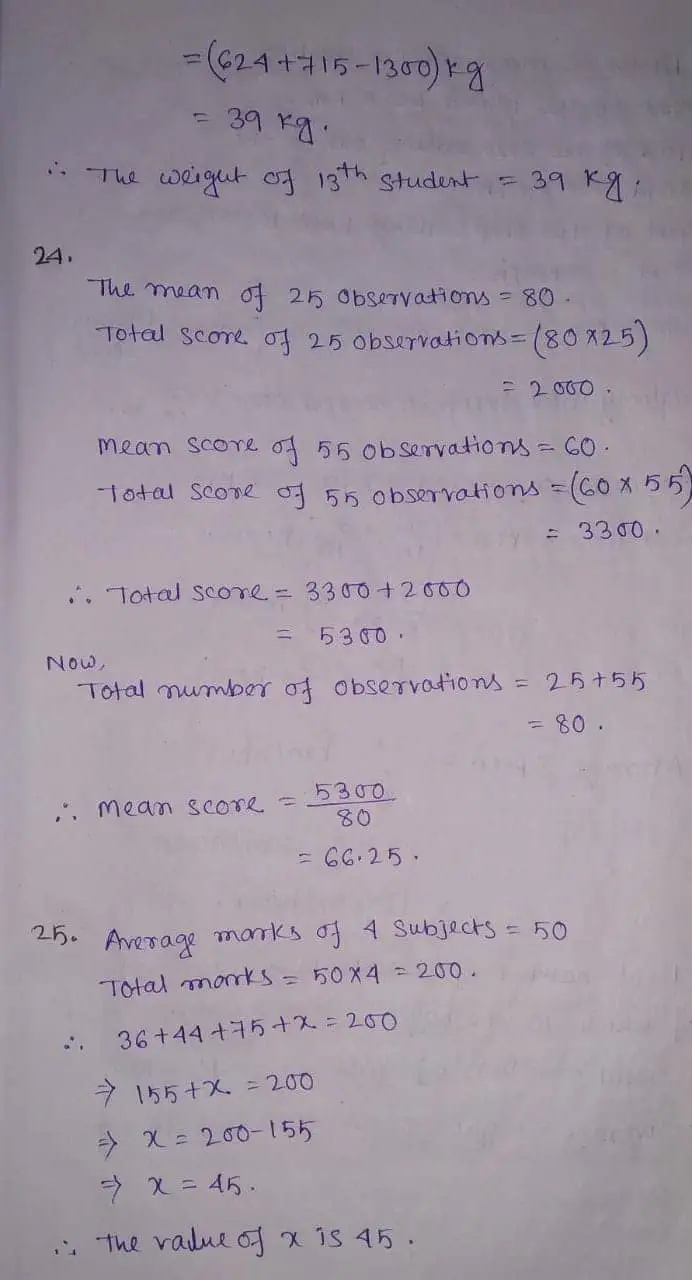 =(624+715-1300) kg
= 39 kg.
∴ The weigut of 13th student = 39 kg.
24.
The mean of 25 observations = 80.
Total score of 25 observations = (80×25)
= 2000.
mean score of 55 observations = 60.
Total score of 55 observations = (60 × 55)
= 3300.
∴ Total score = 3300+2000
= 5300.
Now,
Total number of observations = 25+55
= 80.
∴ mean score = 5300/80
= 66.25.
25. Average marks of 4 subjects = 50
Total marks = 50×4 = 200.
∴ 36+44+75+x = 200
⇒ 155+x = 200
⇒ x = 200-155
⇒ x = 45.
∴ The value of x is 45.